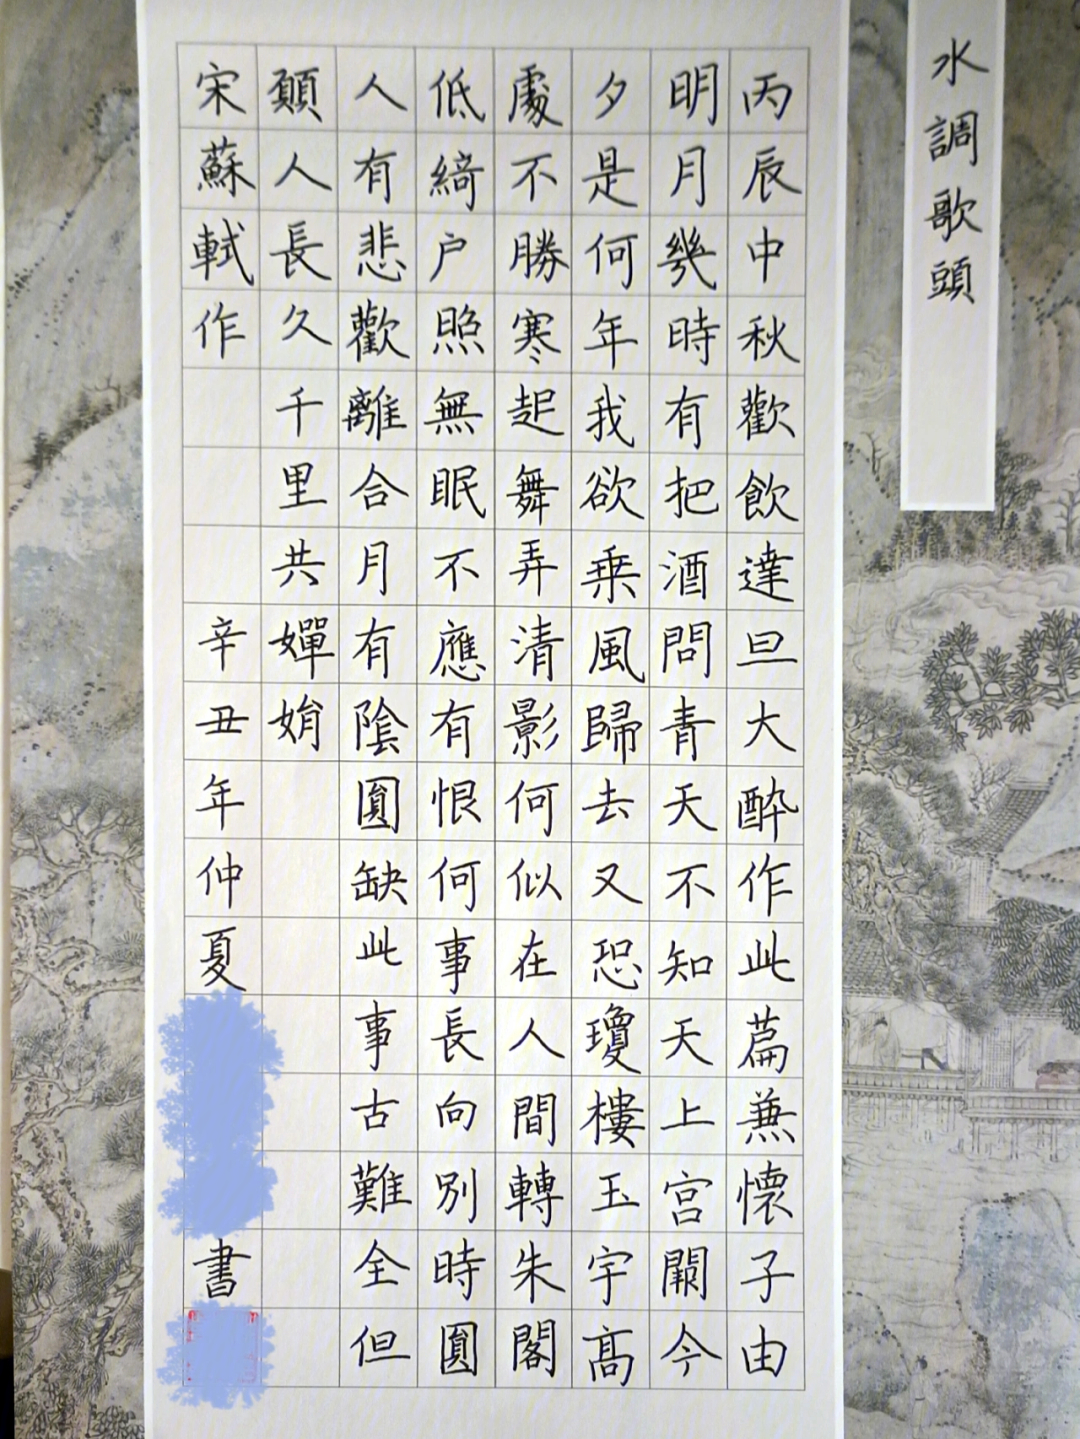 水調歌頭
丙辰中秋歡飲達旦大醉作此篇兼懷子由
明月幾時有把酒問青天不知天上宮闕今
夕是何年我欲乗風歸去又恐瓊樓玉宇高
處不勝寒起舞弄清影何似在人間轉朱閣
低綺户照無眠不應有恨何事長向别時圓
人有悲歡離合月有陰圓缺此事古難全但
願人長久千里共嬋娟
宋蘇軾作 辛丑年仲夏 書